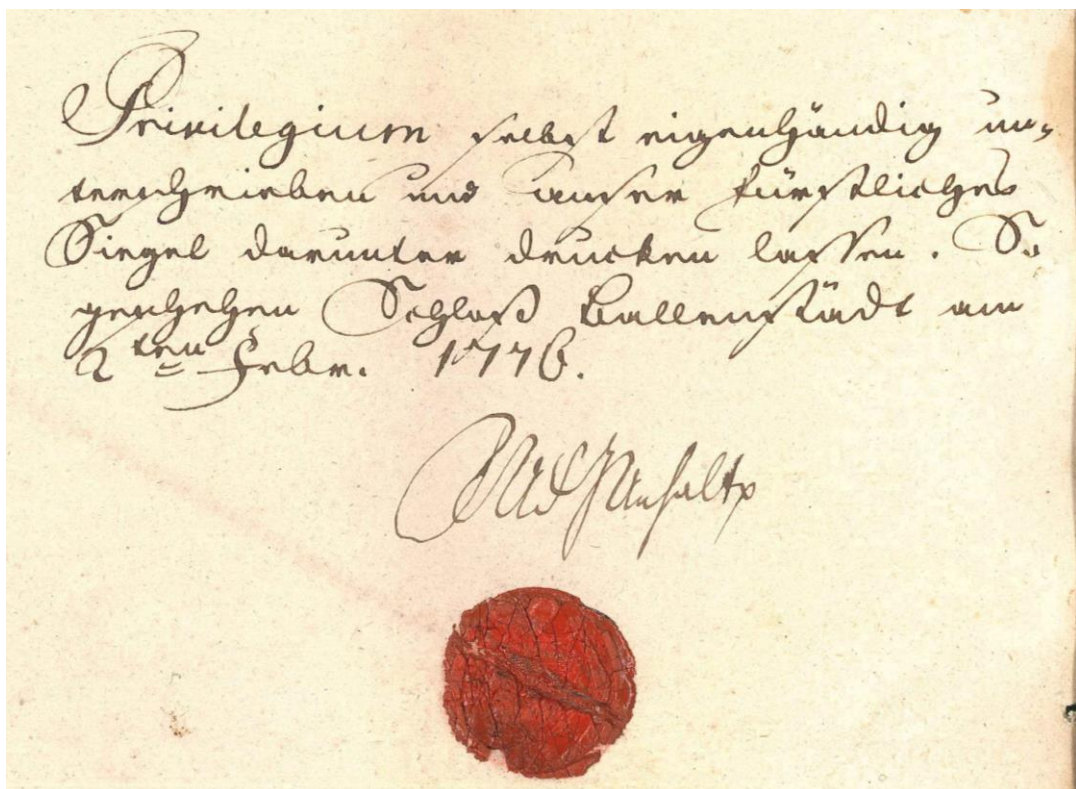 Privilegium selbst eigenhändig un-
terschrieben und Unser Fürstliches
Siegel darunter drucken lassen. So
geschehen Schloß Ballenstädt am
2ten Febr. 1776.
Anhalt